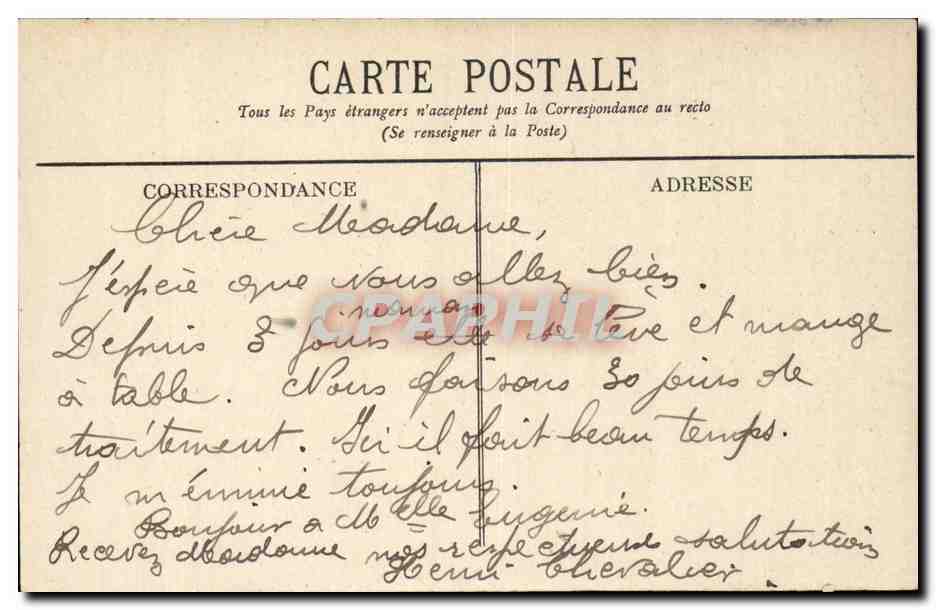 CARTE POSTALE
Tous les Pays étrangers n'acceptent pas la Correspondance au recto
(Se renseigner à la Poste)
CORRESPONDANCE
ADRESSE
Chère Madame,
J'espère que vous allez bien.
maman
Depuis 3 jours elle se lève et mange
à table. Nous faisons 30 jours de
traitement. Ici il fait beau temps.
Je m'ennuie toujours.
Bonjour a Melle Eugenie.
Recevez Madame nos respectueuses salutations
Henri Chevalier
CPARHIL